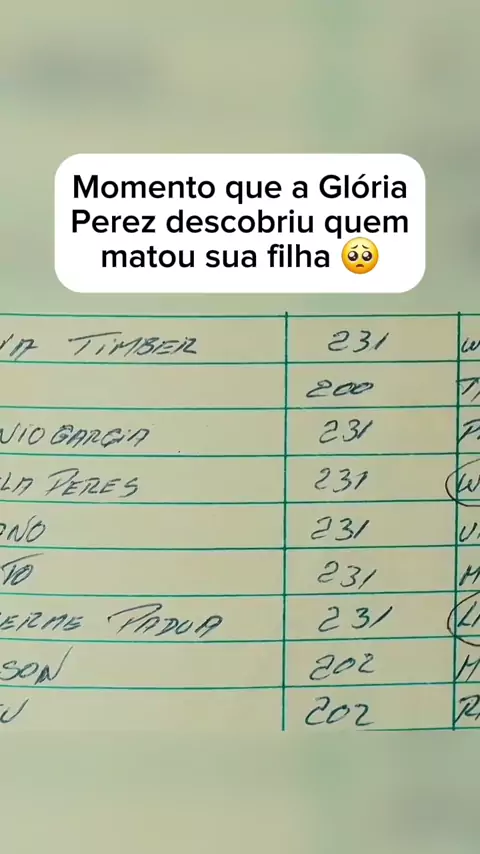 Momento que a Glória
Perez descobriu quem
matou sua filha 🥺
TIMBER 231
200 T
NIO GARCIA 231 P
LA PERES 231 W
ANO 231
TO 231 M
ERME PADUA 231 LA
SON 202 M
U 202 R